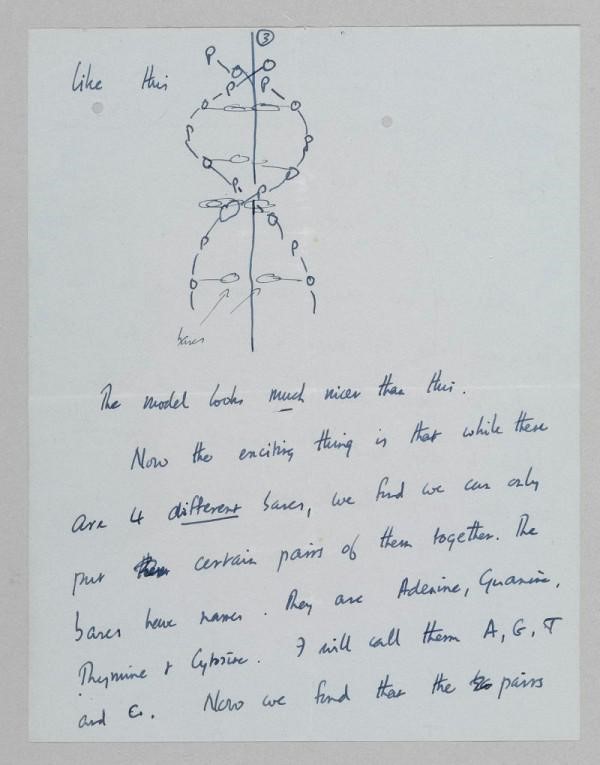 ③
Like this
P
O
P
P
O
O
P
P
P
P
P
P
bases
The model looks much nicer than this.
Now the exciting thing is that while there
are 4 different bases, we find we can only
put certain pairs of them together. The
bases have names. They are Adenine, Guanine,
Thymine & Cytosine. I will call them A, G, T
and C. Now we find that the pairs